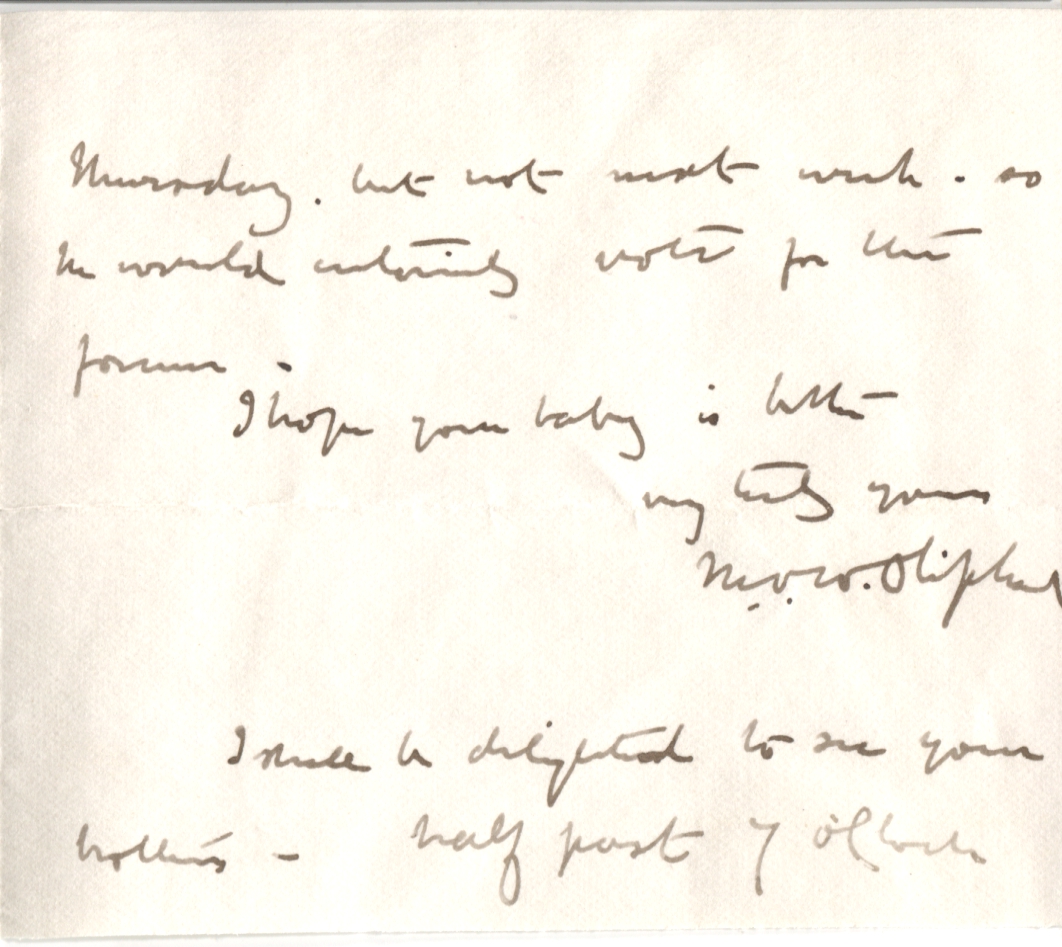 Thursday. but not next week - so
he would certainly vote for the
former -
I hope your baby is better
very truly yours
M.O.W. Oliphan
I shall be delighted to see your
half past 7 o'clock